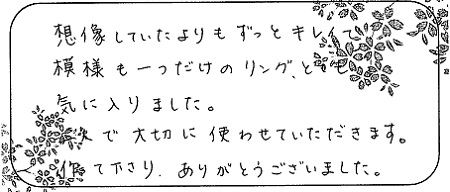 想像していたよりもずっとキレイで
模様も一つだけのリング、とても
気に入りました。
次で大切に使わせていただきます。
作って下さり、ありがとうございました。